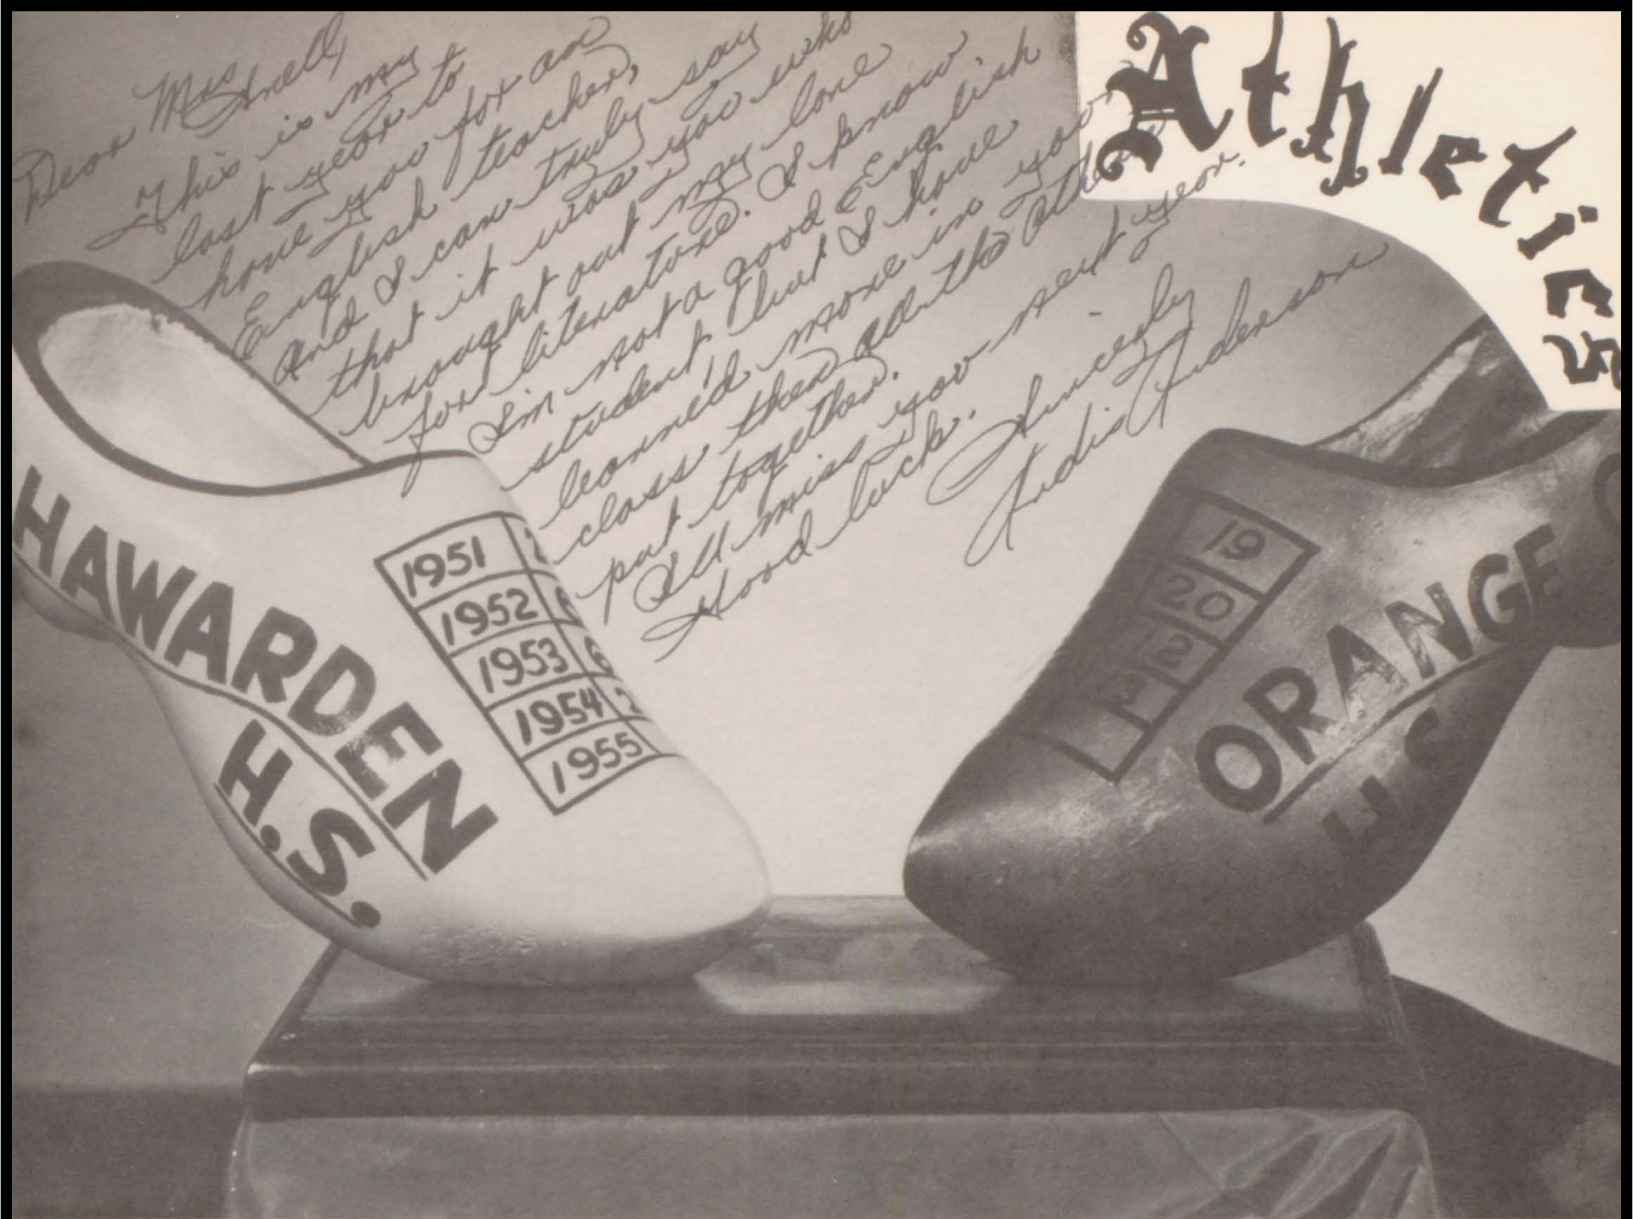 Athletics
Dear Mrs
This is my
last year to
have you for an
English teacher,
and I can truly say
that it was you who
brought out my love
for literature. I know
I'm not a good English
student, but I have
learned more in your
class than all the other
put together.
I'll miss you next year.
Good luck.
Sincerely
Anderson
HAWARDEN
H.S.
1951
1952
1953
1954
1955
19
20
2
ORANGE
H.S.